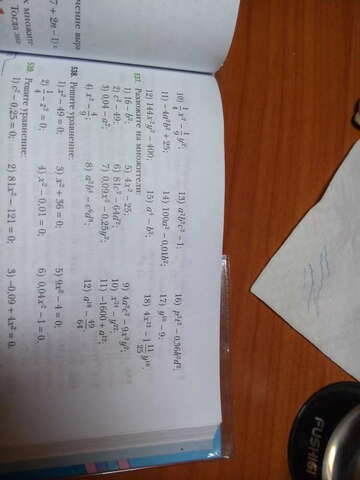 7 + 2n − 1);
чение выра
х множите
Тогда зна
10) 1/4 x² − 1/9 y²; 13) a²b²c² − 1; 16) p²t² − 0,36k²d²;
11) −4a²b² + 25; 14) 100a² − 0,01b²; 17) y¹⁰ − 9;
12) 144x²y² − 400; 15) a⁴ − b²; 18) 4x¹² − 1 11/25 y¹⁶.
537. Разложите на множители:
1) 16 − b²; 5) 4x² − 25; 9) 4a²c² − 9x²y²;
2) c² − 49; 6) 81c² − 64d²; 10) x²⁴ − y²²;
3) 0,04 − a²; 7) 0,09x² − 0,25y²; 11) −1600 + a¹²;
4) x² − 4/9; 8) a²b⁴ − c⁶d⁸; 12) a¹⁸ − 49/64
538. Решите уравнение:
1) x² − 49 = 0; 3) x² + 36 = 0; 5) 9x² − 4 = 0;
2) 1/4 − z² = 0; 4) x² − 0,01 = 0; 6) 0,04x² − 1 = 0.
539. Решите уравнение:
1) c² − 0,25 = 0; 2) 81x² − 121 = 0; 3) −0,09 + 4x² = 0.